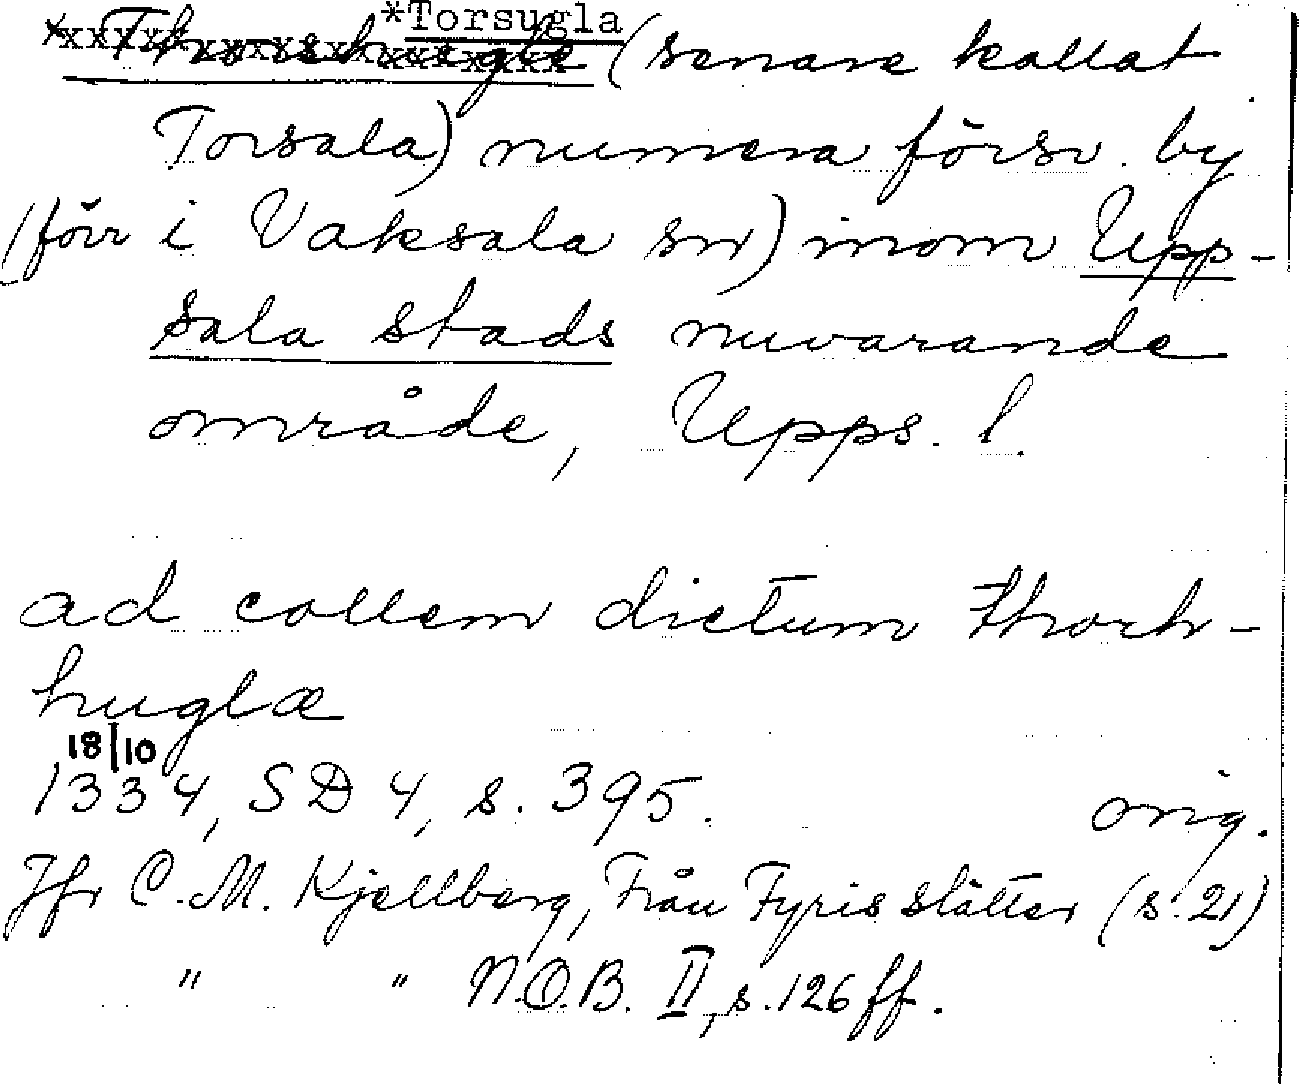 *Torsugla
(senare kallat
Torsala) numera försv. by
(förr i Vaksala sn) inom Upp-
sala stads nuvarande
område, Upps. l.
ad collem dictum thorh-
huglæ
18/10
1334, SD 4, s. 395. orig.
Jfr C. M. Kjellberg, Från Fyris slätter (s. 21)
" " N.O.B. II, s. 126 ff.